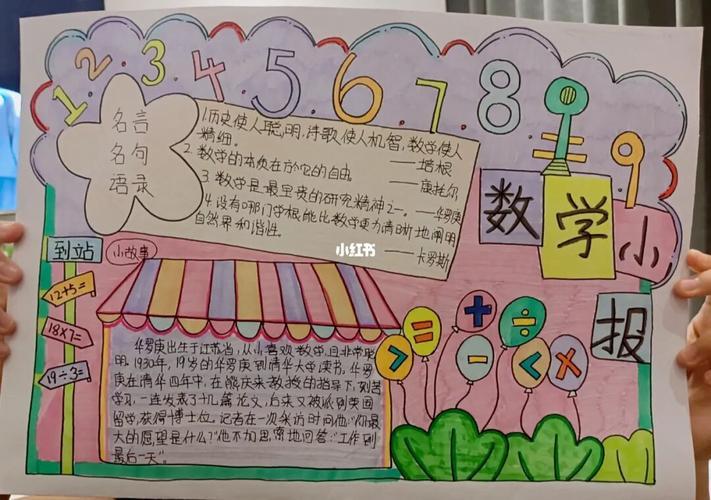 1 2 3 4 5 6 7 8 9
名言
名句
语录
1.历史使人聪明,诗歌使人机智,数学使人
精细。
——培根
2.数学的本质在于它的自由
——康托尔
3 数学是最宝贵的研究精神之一。——华罗庚
4 没有哪门学科能比数学更为清晰地阐明
自然界和谐性
——卡罗斯
数学小报
到站
小故事
小红书
12+5=
18×7=
19÷3=
华罗庚出生于江苏省,从小喜欢数学,且非常聪
明.1930年,19岁的华罗庚到清华大学读书,华罗
庚在清华四年中,在熊庆来教授的指导下,刻苦
学习,一连发表了十几篇论文,后来又被派到英国
留学,获得博士位.记者在一次采访时问他:"你最
大的愿望是什么?"他不加思索地回答:"工作到
最后一天"。
> = + ÷ - < ×